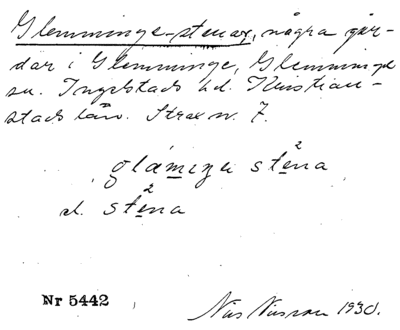 Glemminge-stenar, några går-
dar i Glemminge, Glemminge
sn. Ingelstads hd. Kristian-
stads län. Strax n. 7.
glámiza sténa
el. sténa
Nr 5442
Nils Nilsson 1930.